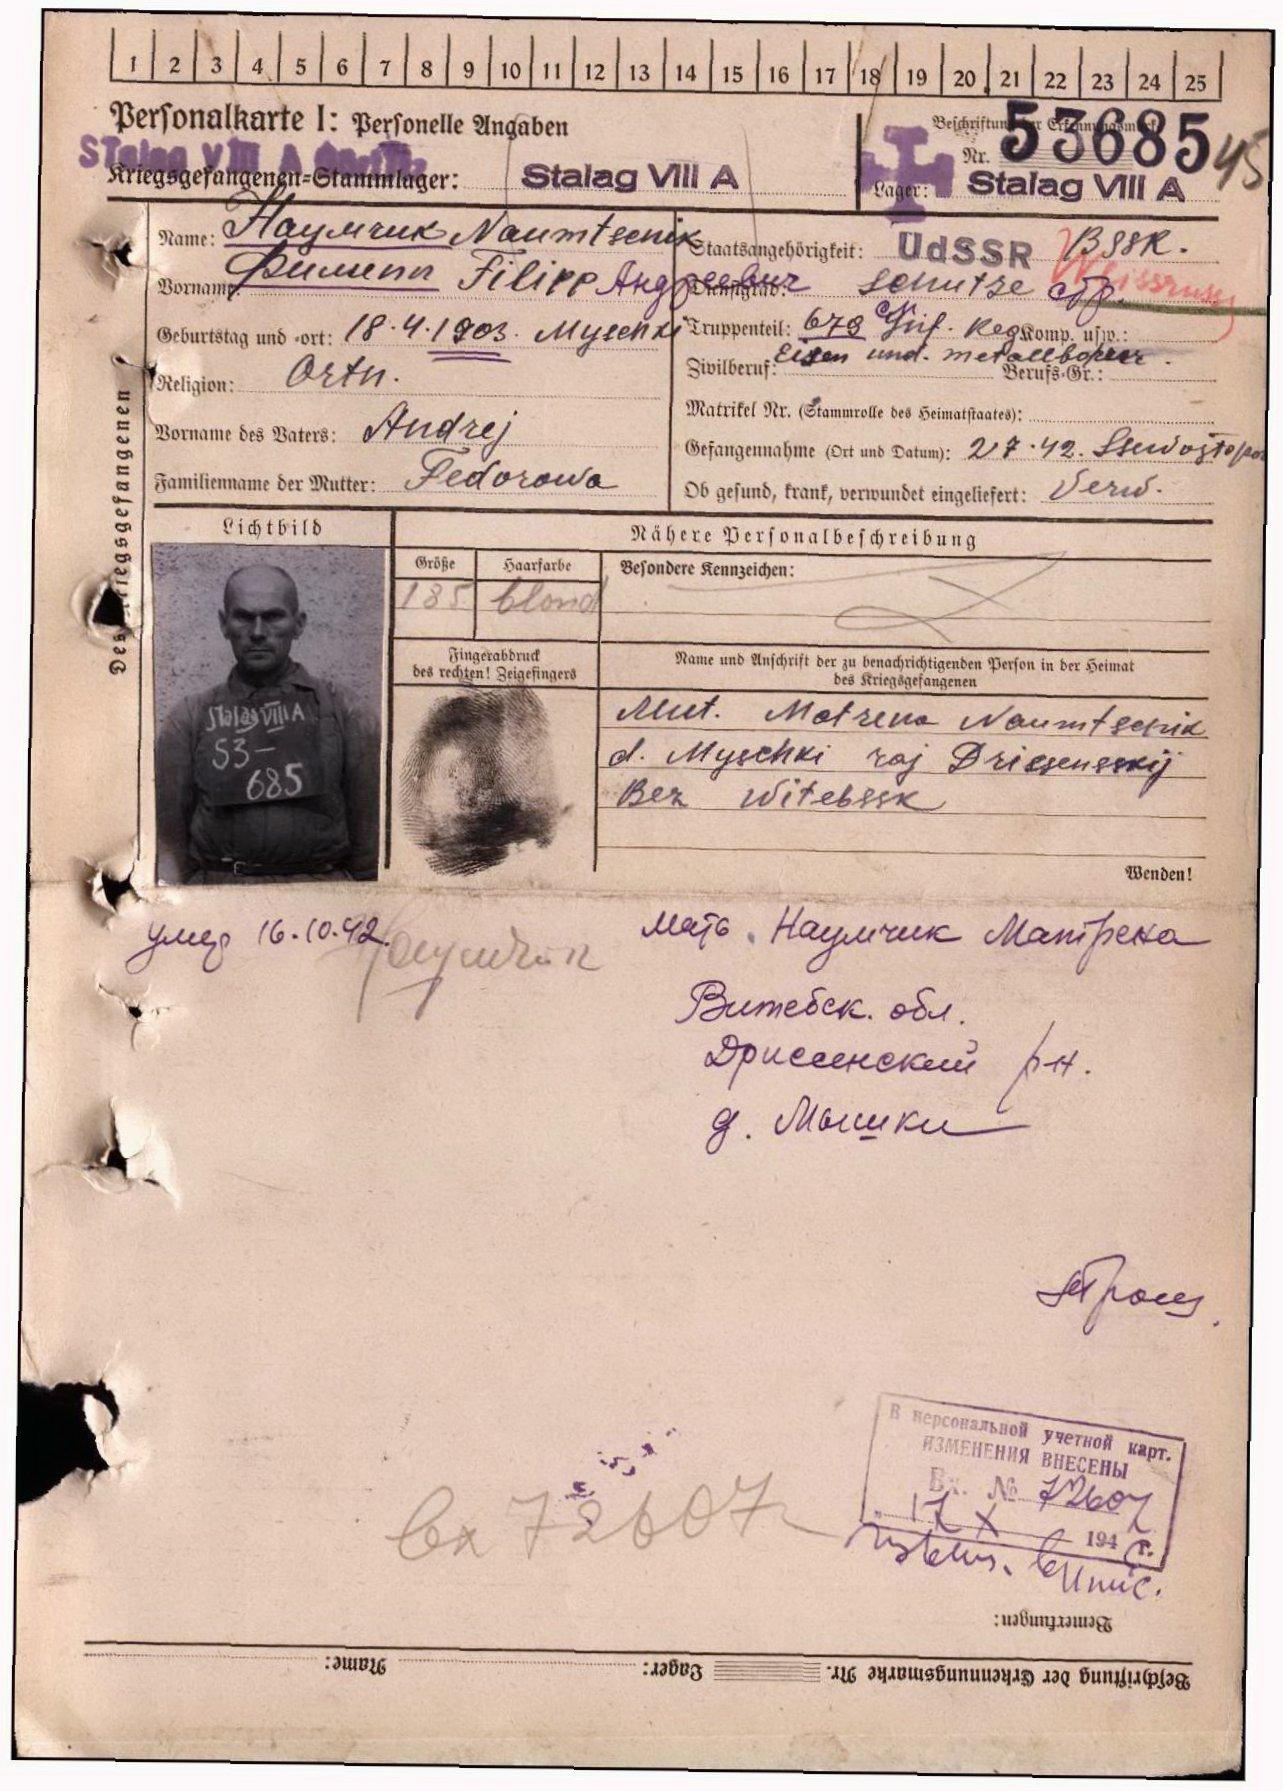 1 2 3 4 5 6 7 8 9 10 11 12 13 14 15 16 17 18 19 20 21 22 23 24 25
Personalkarte I: Personelle Angaben
Stalag VIII A
Kriegsgefangenen=Stammlager: Stalag VIII A
Beschriftung der Erkennungsmarke
Nr. 53685 45
Lager: Stalag VIII A
Des Kriegsgefangenen
Name: Наумчик Naumtschik
Vorname: Филипп Filipp Андреевич
Geburtstag und -ort: 18.4.1903. Myschki
Religion: Orth.
Vorname des Vaters: Andrej
Familienname der Mutter: Fedorowa
Staatsangehörigkeit: UdSSR BSSR.
Weissruss
Dienstgrad: Schutze стр.
Truppenteil: 679 Inf. Reg Komp. usw.:
Zivilberuf: Eisen und. metallbohrer. Berufs-Gr.:
Matrikel Nr. (Stammrolle des Heimatstaates):
Gefangennahme (Ort und Datum): 2 7.42. Ssewastopol
Ob gesund, krank, verwundet eingeliefert: Verw.
Lichtbild
Stalag VIII A
53-
685
Nähere Personalbeschreibung
Größe Haarfarbe Besondere Kennzeichen:
185 blond
Fingerabdruck
des rechten! Zeigefingers
Name und Anschrift der zu benachrichtigenden Person in der Heimat
des Kriegsgefangenen
Mut. Motrena Naumtschik
d. Myschki raj Driesensskij
Bez Witebssk
Wenden!
умер 16.10.42. Наумчик
мать. Наумчик Матрена
Витебск. обл.
Дриссенский р-н.
д. Мышки
вх 72607
В персональной учетной карт.
ИЗМЕНЕНИЯ ВНЕСЕНЫ
Вх. № 72607
„17 X 194 г.
Bemerkungen:
Beschriftung der Erkennungsmarke Nr. Lager: Name: